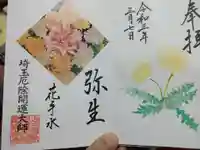 奉拝
令和三年
三月七日
弥生
花手水
埼玉厄除開運大師